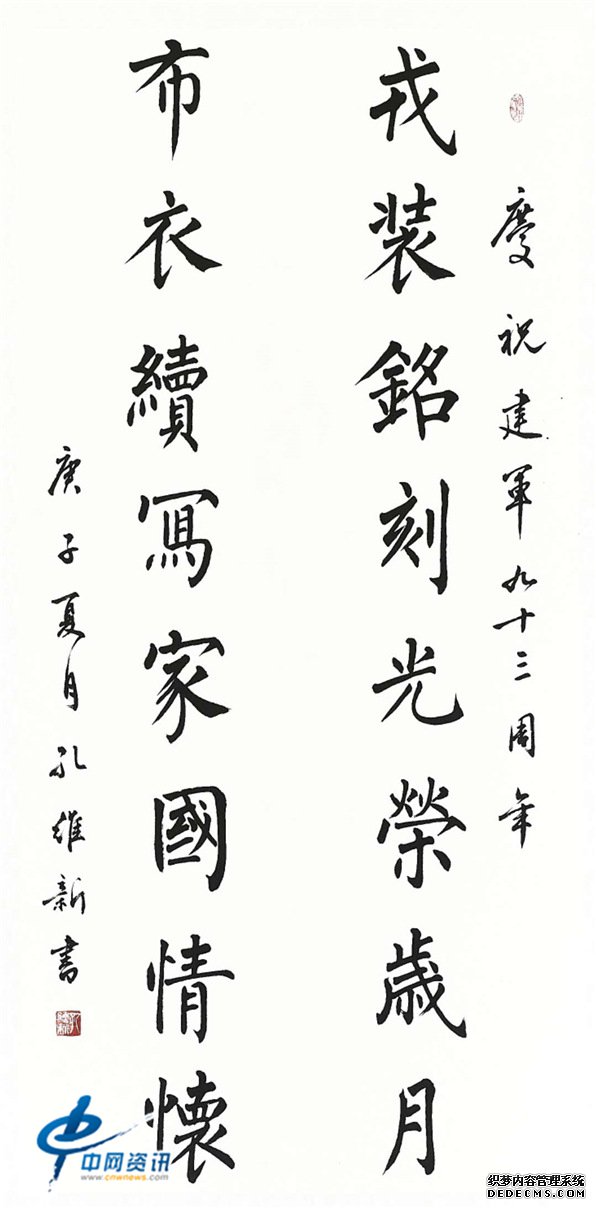 慶祝建軍九十三周年
戎裝銘刻光榮歲月
布衣續寫家國情懷
庚子夏月孔維新書
中网资讯
www.cnwnews.com
织梦内容管理系统
DEDECMS.COM